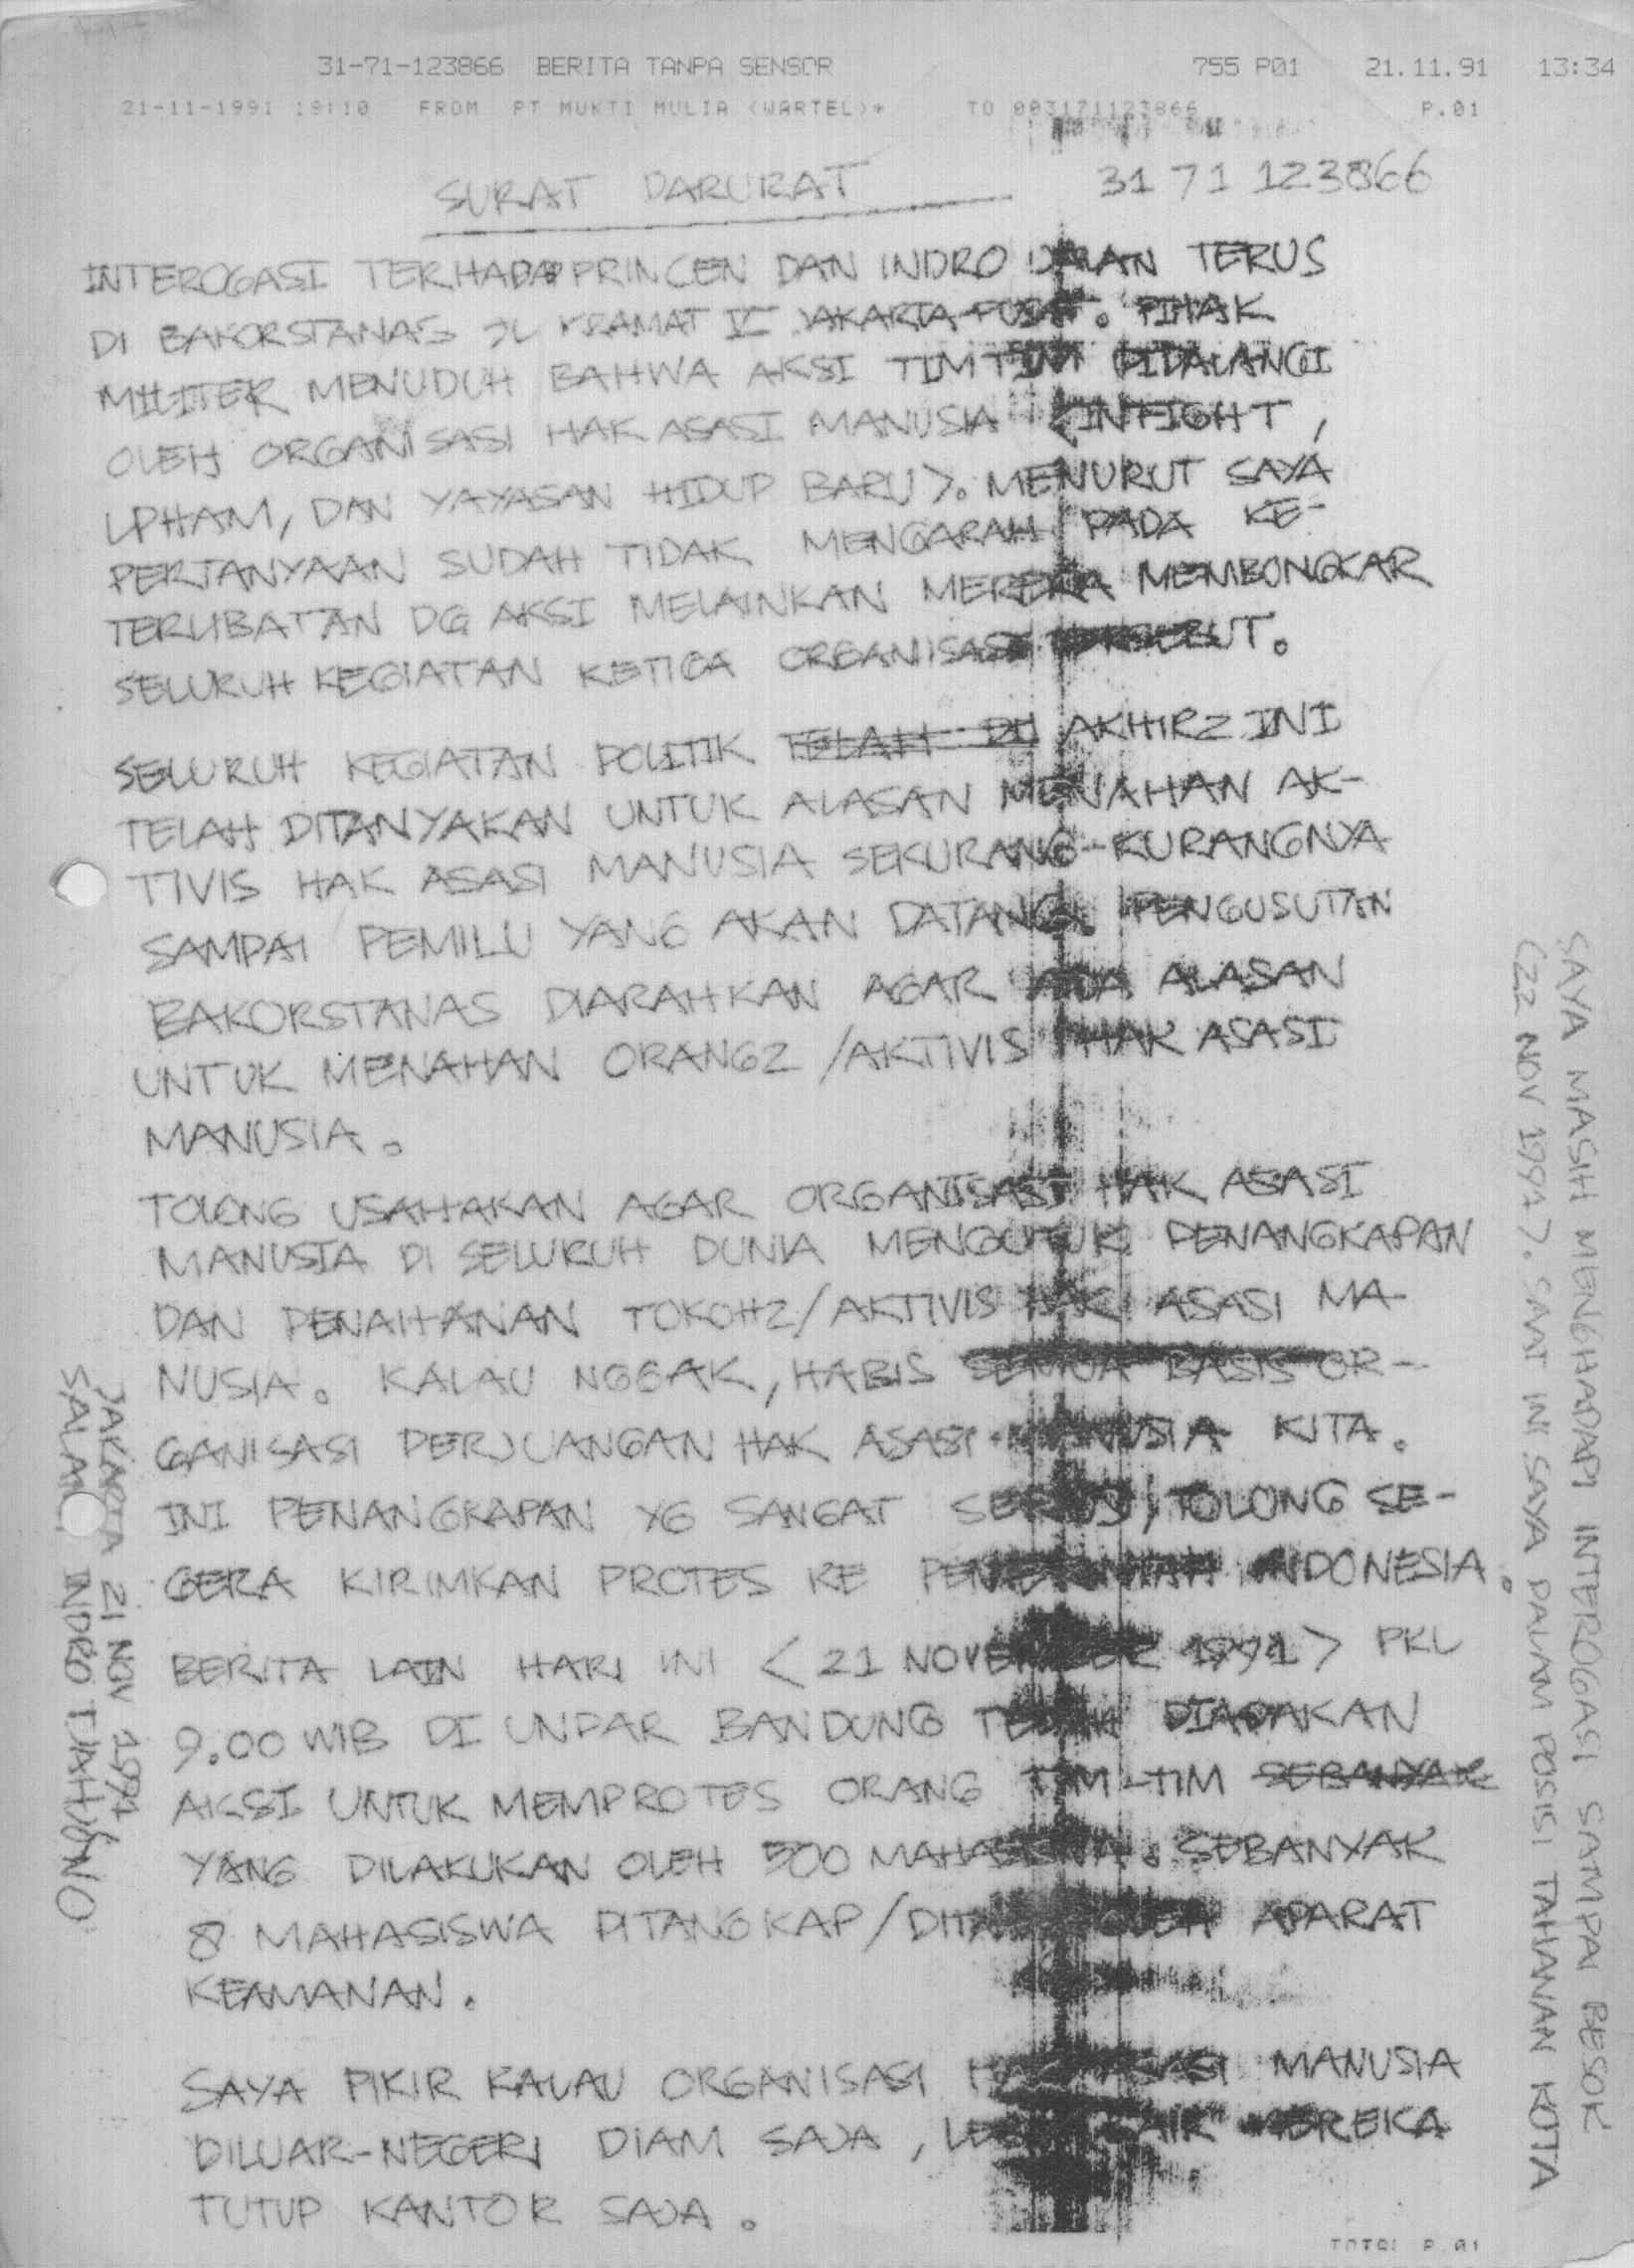 31-71-123866 BERITA TANPA SENSOR 755 P01 21.11.91 13:34
21-11-1991 19:10 FROM PT MUKTI MULIA (WARTEL)* TO 003171123866 P.01
SURAT DARURAT 31 71 123866
INTEROGASI TERHADAP PRINCEN DAN INDRO JALAN TERUS
DI BAKORSTANAS JL KRAMAT V JAKARTA PUSAT. PIHAK
MILITER MENUDUH BAHWA AKSI TIMTIM DIDALANGI
OLEH ORGANISASI HAK ASASI MANUSIA <INFIGHT,
LPHAM, DAN YAYASAN HIDUP BARU>. MENURUT SAYA
PERTANYAAN SUDAH TIDAK MENGARAH PADA KE-
TERLIBATAN DG AKSI MELAINKAN MEREKA MEMBONGKAR
SELURUH KEGIATAN KETIGA ORGANISASI TERSEBUT.
SELURUH KEGIATAN POLITIK TELAH DI AKHIR2 INI
TELAH DITANYAKAN UNTUK ALASAN MENAHAN AK-
TIVIS HAK ASASI MANUSIA SEKURANG-KURANGNYA
SAMPAI PEMILU YANG AKAN DATANG. PENGUSUTAN
BAKORSTANAS DIARAHKAN AGAR ADA ALASAN
UNTUK MENAHAN ORANG2 /AKTIVIS HAK ASASI
MANUSIA.
TOLONG USAHAKAN AGAR ORGANISASI HAK ASASI
MANUSIA DI SELURUH DUNIA MENGUTUK PENANGKAPAN
DAN PENAHANAN TOKOH2/AKTIVIS HAK ASASI MA-
NUSIA. KALAU NGGAK, HABIS SEMUA BASIS OR-
GANISASI PERJUANGAN HAK ASASI MANUSIA KITA.
INI PENANGKAPAN YG SANGAT SERIUS, TOLONG SE-
GERA KIRIMKAN PROTES KE PEMERINTAH INDONESIA.
BERITA LAIN HARI INI <21 NOVEMBER 1991> PKL
9.00 WIB DI UNPAR BANDUNG TELAH DIADAKAN
AKSI UNTUK MEMPROTES ORANG TIM-TIM SEBANYAK
YANG DILAKUKAN OLEH 500 MAHASISWA. SEBANYAK
8 MAHASISWA DITANGKAP/DITAHAN OLEH APARAT
KEAMANAN.
SAYA PIKIR KALAU ORGANISASI HAK ASASI MANUSIA
DILUAR-NEGERI DIAM SAJA, LEBIH BAIK MEREKA
TUTUP KANTOR SAJA.
TOTAL P.01
JAKARTA 21 NOV 1991
SALAM, INDRO TJAHJONO
SAYA MASIH MENGHADAPI INTEROGASI SAMPAI BESOK
(22 NOV 1991). SAAT INI SAYA DALAM POSISI TAHANAN KOTA